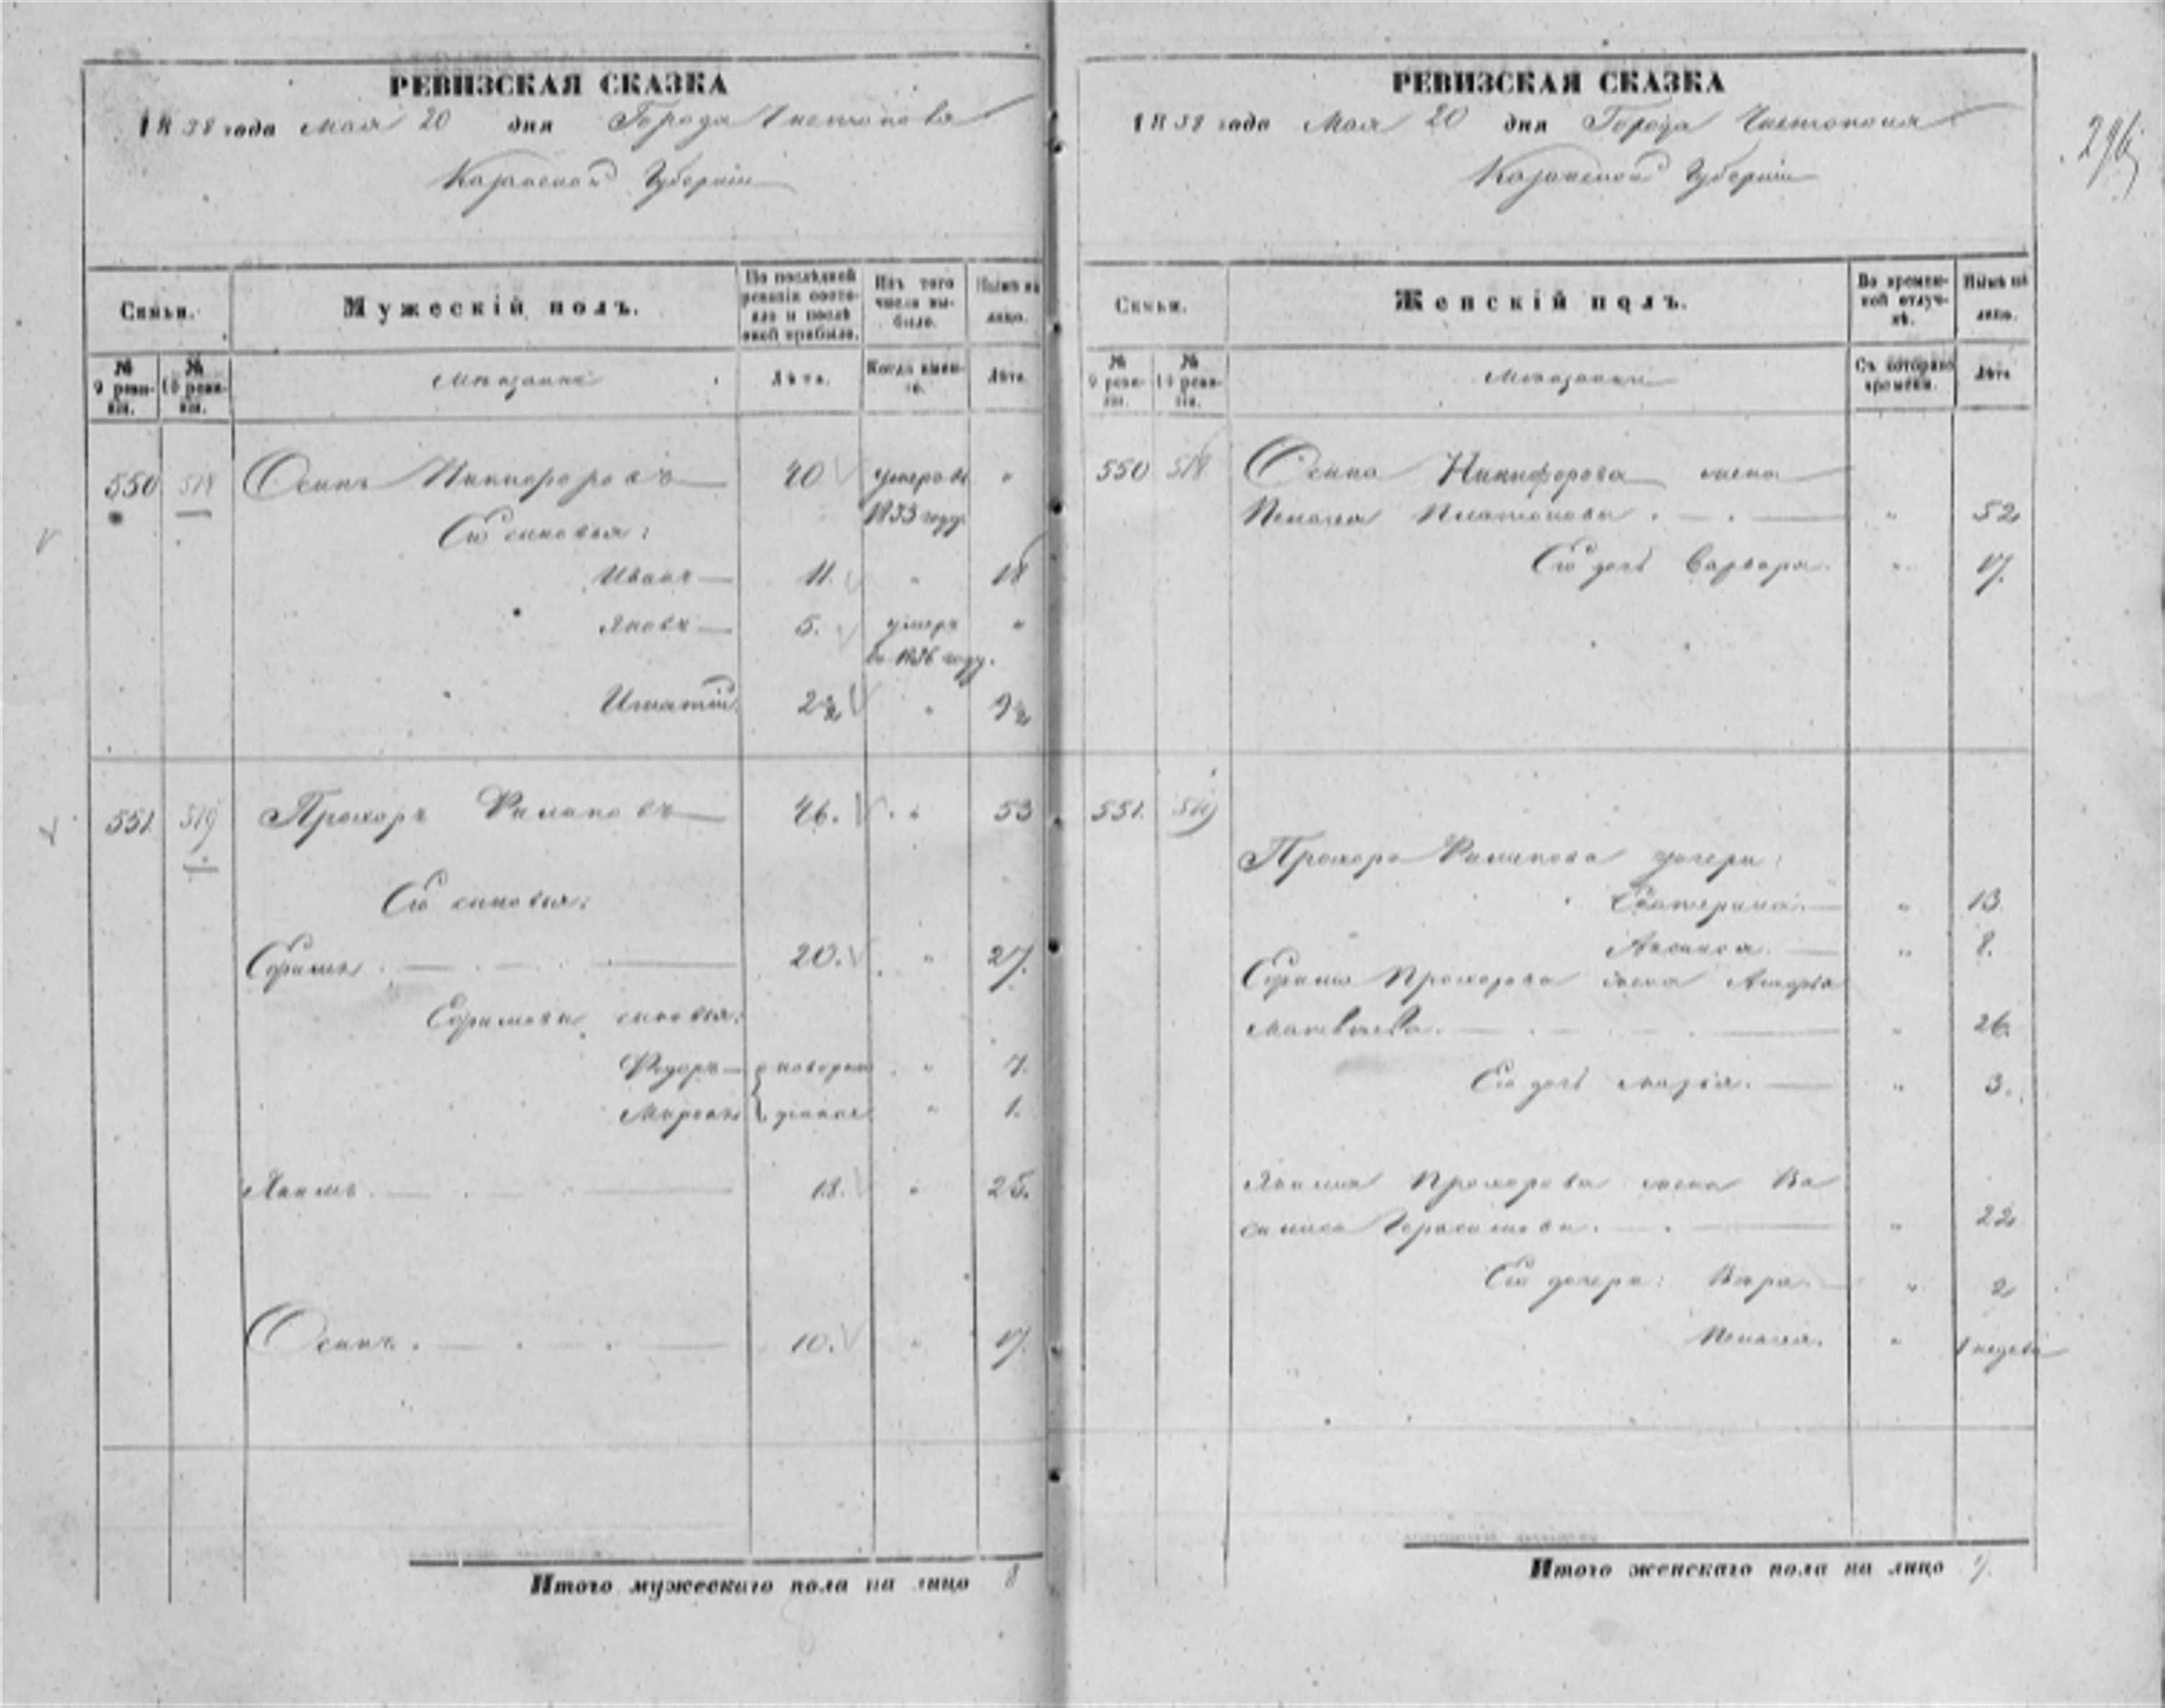 РЕВИЗСКАЯ СКАЗКА
1858 года Мая 20 дня Города Чистополя
Казанской Губернии
Семьи.
Мужескій полъ.
По послѣдней ревизіи состояло и послѣ оной прибыло.
Изъ того числа выбыло.
Нынѣ на лицо.
№ 9 ревизіи.
№ 10 ревизіи.
Мѣщане
Лѣта.
Когда именно.
Лѣта.
550 518 Осипъ Никифоровъ 40 умеръ въ "
1853 году
Его сыновья:
Иванъ 11. " 18
Яковъ 5. умеръ "
въ 1856 году.
Игнатій 2½ " 9½
551 519 Прохоръ Филиповъ 46. " 53
Его сыновья:
Ефимъ 20. " 27.
Ефимовы сыновья:
Федоръ новорож " 7.
денные " 1.
Якимъ 18. " 25.
Осипъ 10. " 17.
Итого мужескаго пола на лицо 8
РЕВИЗСКАЯ СКАЗКА
1858 года Мая 20 дня Города Чистополя
Казанской Губернии
296
Семьи.
Женскій полъ.
Во временной отлучкѣ.
Нынѣ на лицо.
№ 9 ревизіи.
№ 10 ревизіи.
Мѣщанки
Съ котораго времени.
Лѣта
550 518 Осипа Никифорова жена
Пелагея Платонова " 52
Его дочь Варвара. " 17.
551. 519
Прохора Филипова дочери:
Екатерина. " 13.
Аксинья. " 8.
Ефима Прохорова жена
Матвѣева. " 26.
Его дочь Марья. " 3.
Якима Прохорова жена Ва
силиса Герасимова. " 22
Его дочери: Вѣра. " 2
Пелагея. " 1 недѣли
Итого женскаго пола на лицо 9.